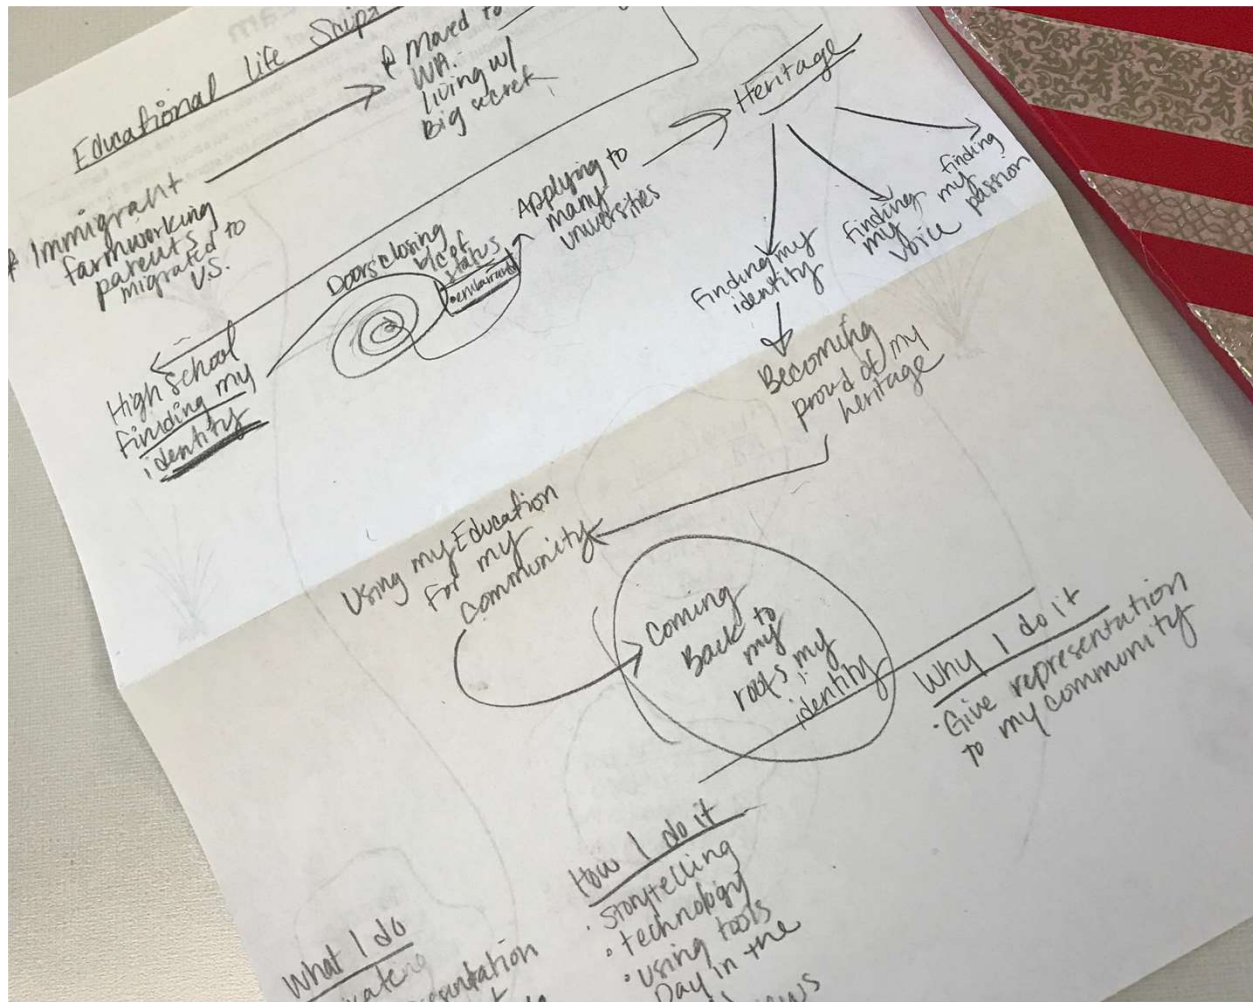 Educational Life
Moved to
WA.
living w/
Big secret
Immigrant
farmworking
parents
migrated to
US.
High School
finding my
identity
Doors closing
b/c of
status
Applying to
many
universities
Heritage
Finding my
identity
Finding
my
voice
finding
my
passion
Becoming
proud of my
heritage
Using my Education
for my
community
Coming
Back to
my
roots, my
identity
Why I do it
· Give representation
to my community
How I do it
· Storytelling
· technology
· using tools
Day in the
What I do